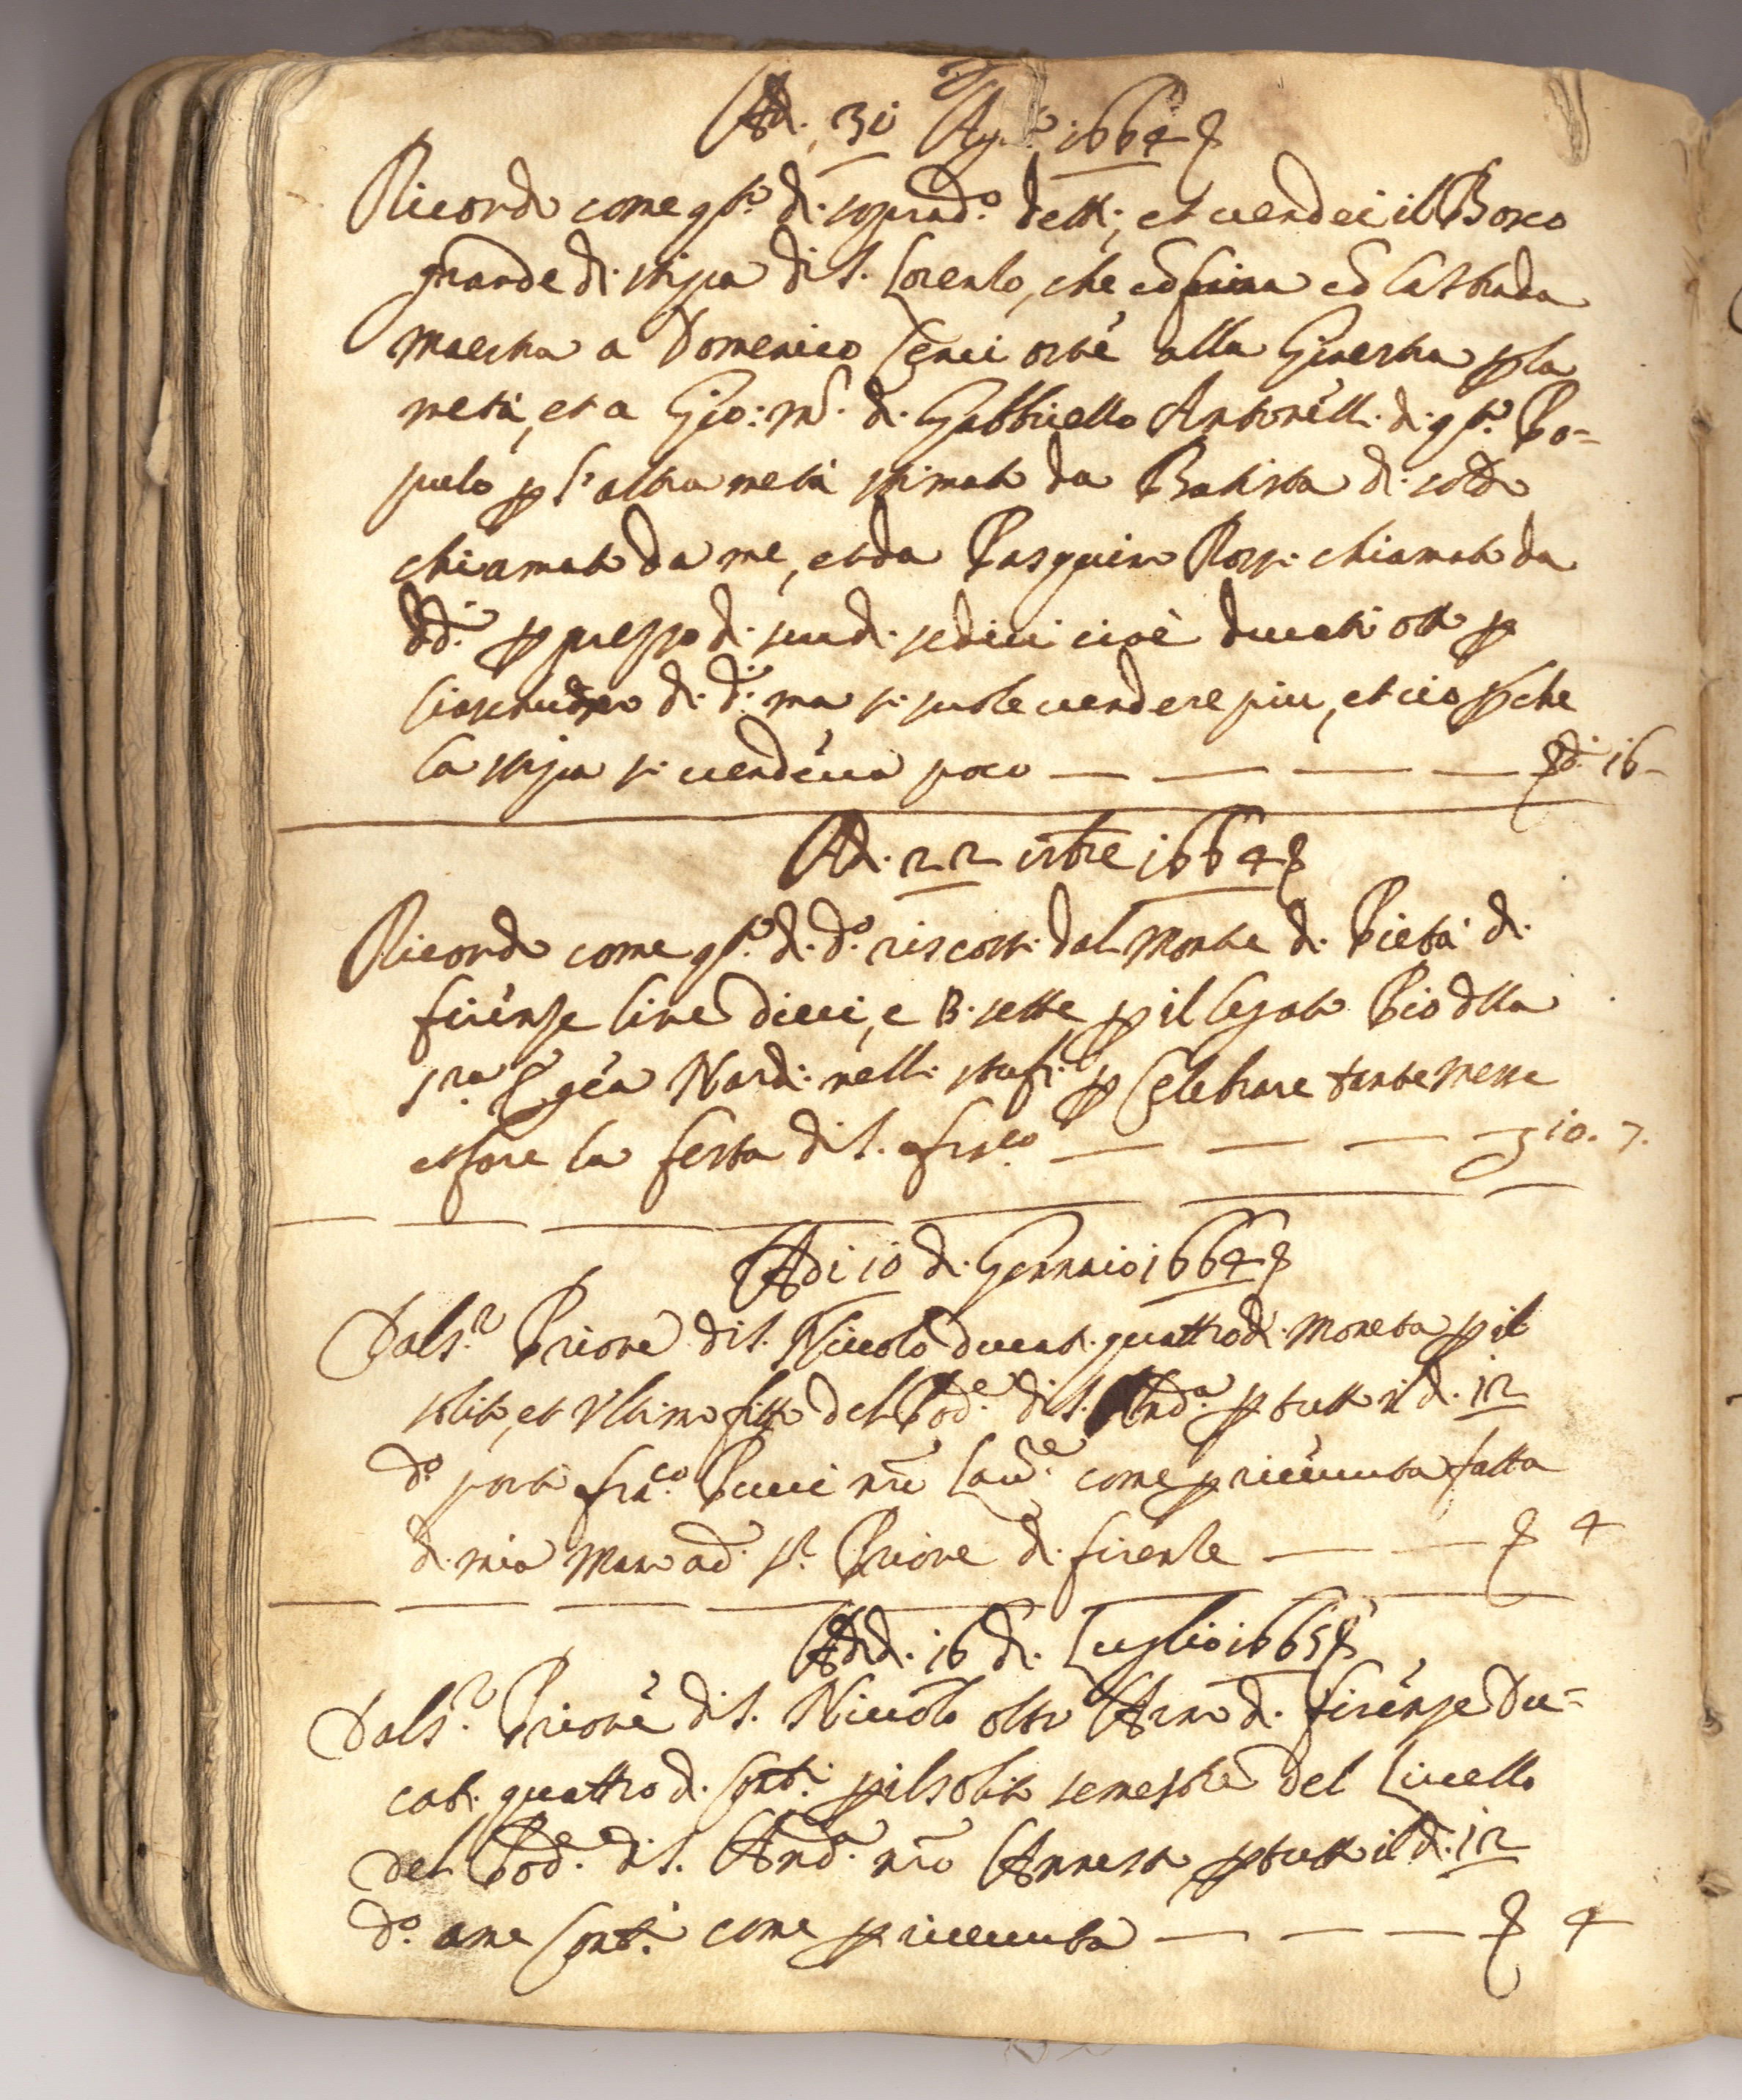 Adi. 31 Ag.to 1664
Ricordo come q.to dì soprad.o detti, et vendei il Bosco
grande di stipa di S. Lorenzo, che cõfina cõ la strada
maestra a Domenico Cenci oste alla Ginestra p la
metà, et a Gio: m.a di Gabbriello Antonelli di q.to Po-
pulo p l'altra metà stimato da Batista di
chiamato da me, et da Pasquino Rossi chiamato da
dd.i p prezzo di scudi sedici cioè ducati otto p
ciascuno di d.i ma si suole vendere piu, et ciò pche
la stipa si vendeva poco — — — — 16-
Adi. 22 1664
Ricordo come q.to dì d.o riscossi dal Monte di Pietà di
firenze lire dieci, e B. sette p il legato Pio dlla
s.ra Nardi nelli p Celebrare tante messe
et fare la festa di S. fra.co — — — — 10. 7.
Adi 10 di Gennaio 1664
Dal S.r Priore di S. Niccolò ducati quattro di moneta p il
solito, et Ultimo fitto del Pod.e di S. And.a p tutto il dì 12
d.o portò fra.co Pucci nro Lau.e come p ricevuta fatta
di mia mano ad. s.r Priore di firenze — — 4
Adi. 16 di Luglio 1665
Dal S.r Priore di S. Niccolò oltr' Arno di firenze Du=
cati quattro di cont.i p il solito semestre del Livello
del Pod.e di S. And.a nro Annesso p tutto il dì 12
d.o a me cont.i come p ricevuta — — — 4